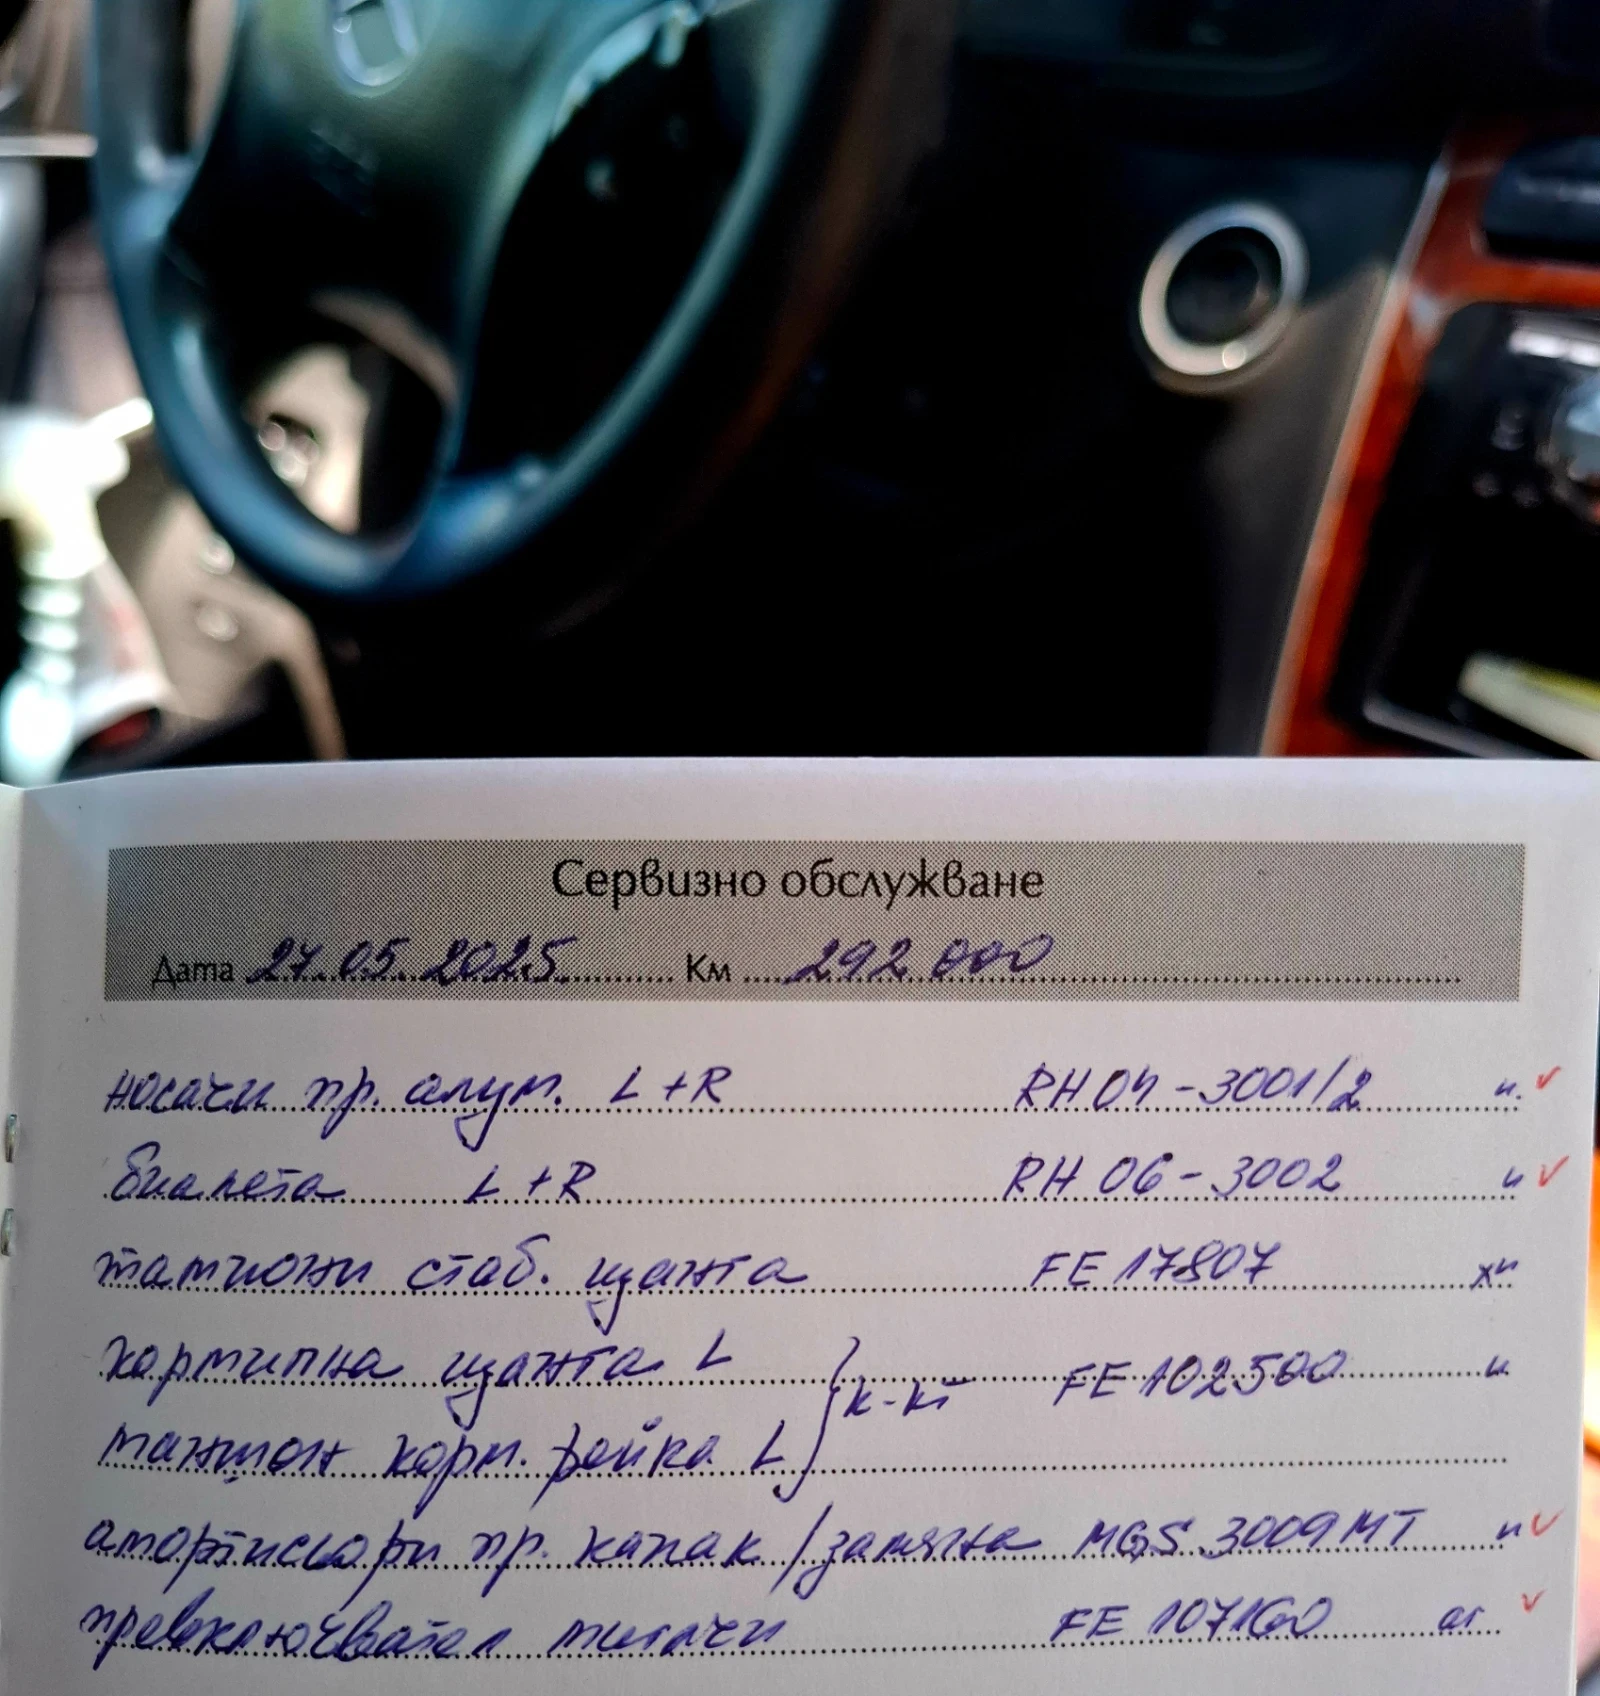 Сервизно обслужване
Дата 27.05.2025 Км 292 000
носачи пр. алум. L+R RH04-3001/2 н. ✓
биалета L+R RH 06-3002 н ✓
тампони стаб. щанга FE 17807 хн
кормилна щанга L } к-кт FE 102500 н
маншон корм. рейка L
амортисьори пр. капак /замяна MGS 3009MT н ✓
превключвател мигачи FE 107160 ог ✓